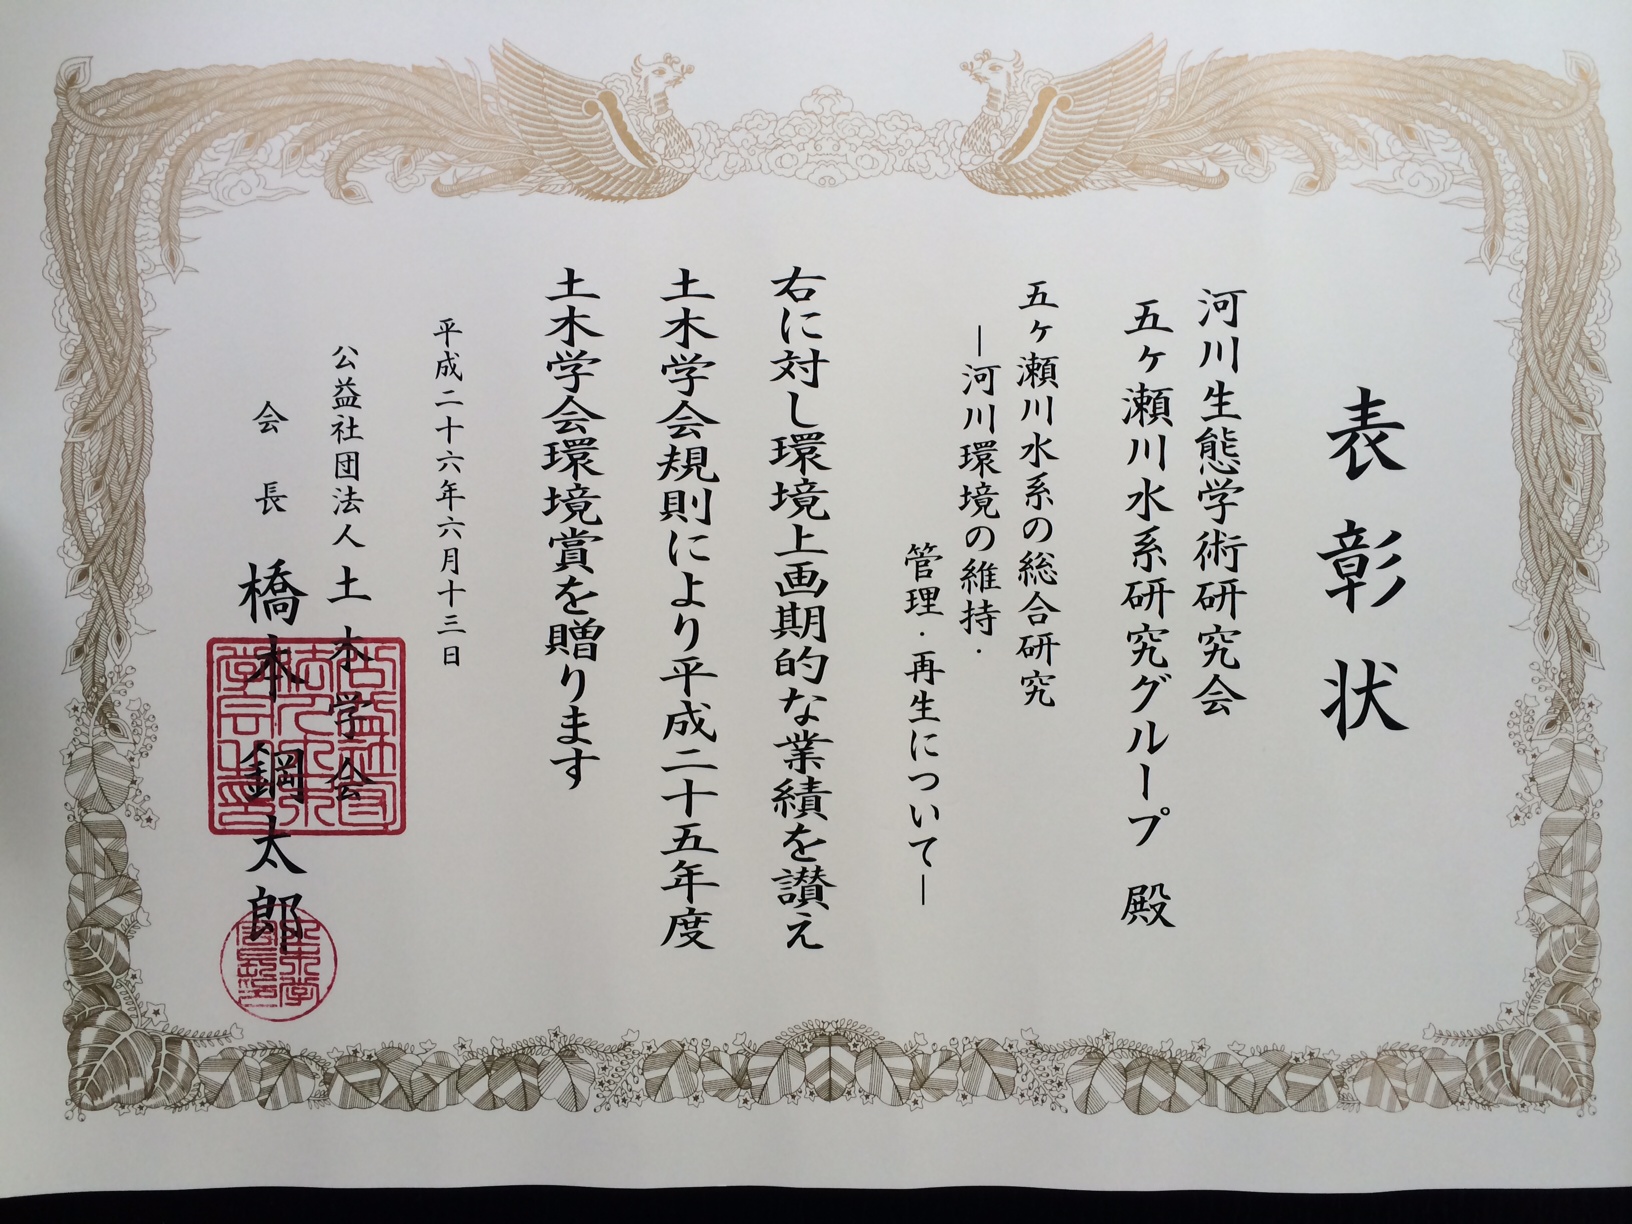 表彰状
河川生態学術研究会
五ヶ瀬川水系研究グループ 殿
五ヶ瀬川水系の総合研究
―河川環境の維持・
管理・再生について―
右に対し環境上画期的な業績を讃え
土木学会規則により平成二十五年度
土木学会環境賞を贈ります
平成二十六年六月十三日
公益社団法人 土木学会
会長 橋本鋼太郎